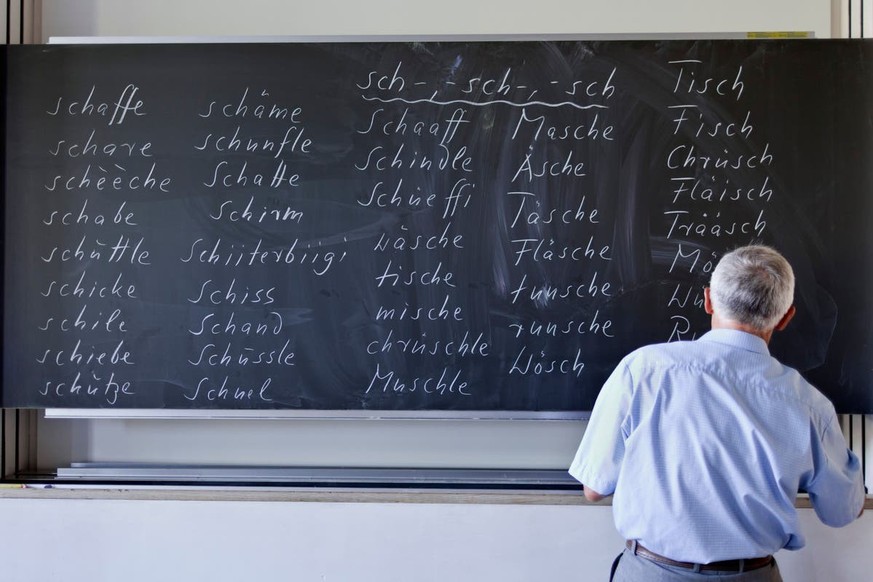 sch-, -sch-, -sch
schaffe
schare
schèèche
schabe
schüttle
schicke
schile
schiebe
schütze
schäme
schunfle
Schatte
Schirm
Schiiterbiigi
Schiss
Schand
Schüssle
Schuel
Schaaff
Schindle
Schüeffi
wäsche
tische
mische
chrüschle
Muschle
Masche
Äsche
Täsche
Fläsche
tunsche
runsche
Wösch
Tisch
Fisch
Chrüsch
Fläisch
Trääsch